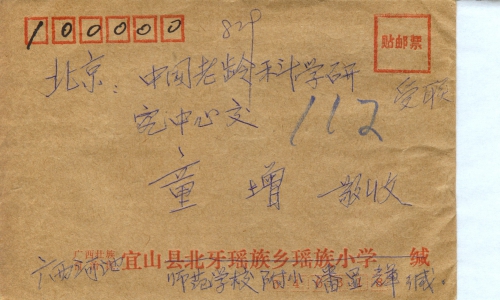 100000
829
贴邮票
北京：中国老龄科学研
究中心交
112
童增 敬收
广西壮族
宜山县北牙瑶族乡瑶族小学 缄
广西河池
师范学校附小潘
缄